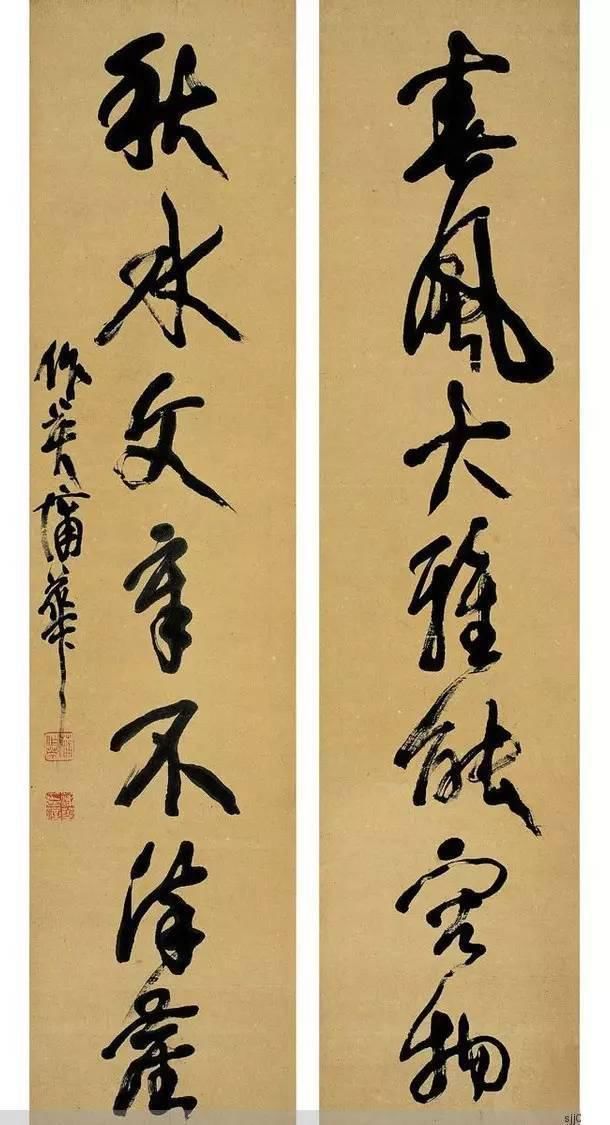 春風大雅能容物
秋水文章不染塵
作英蒲華